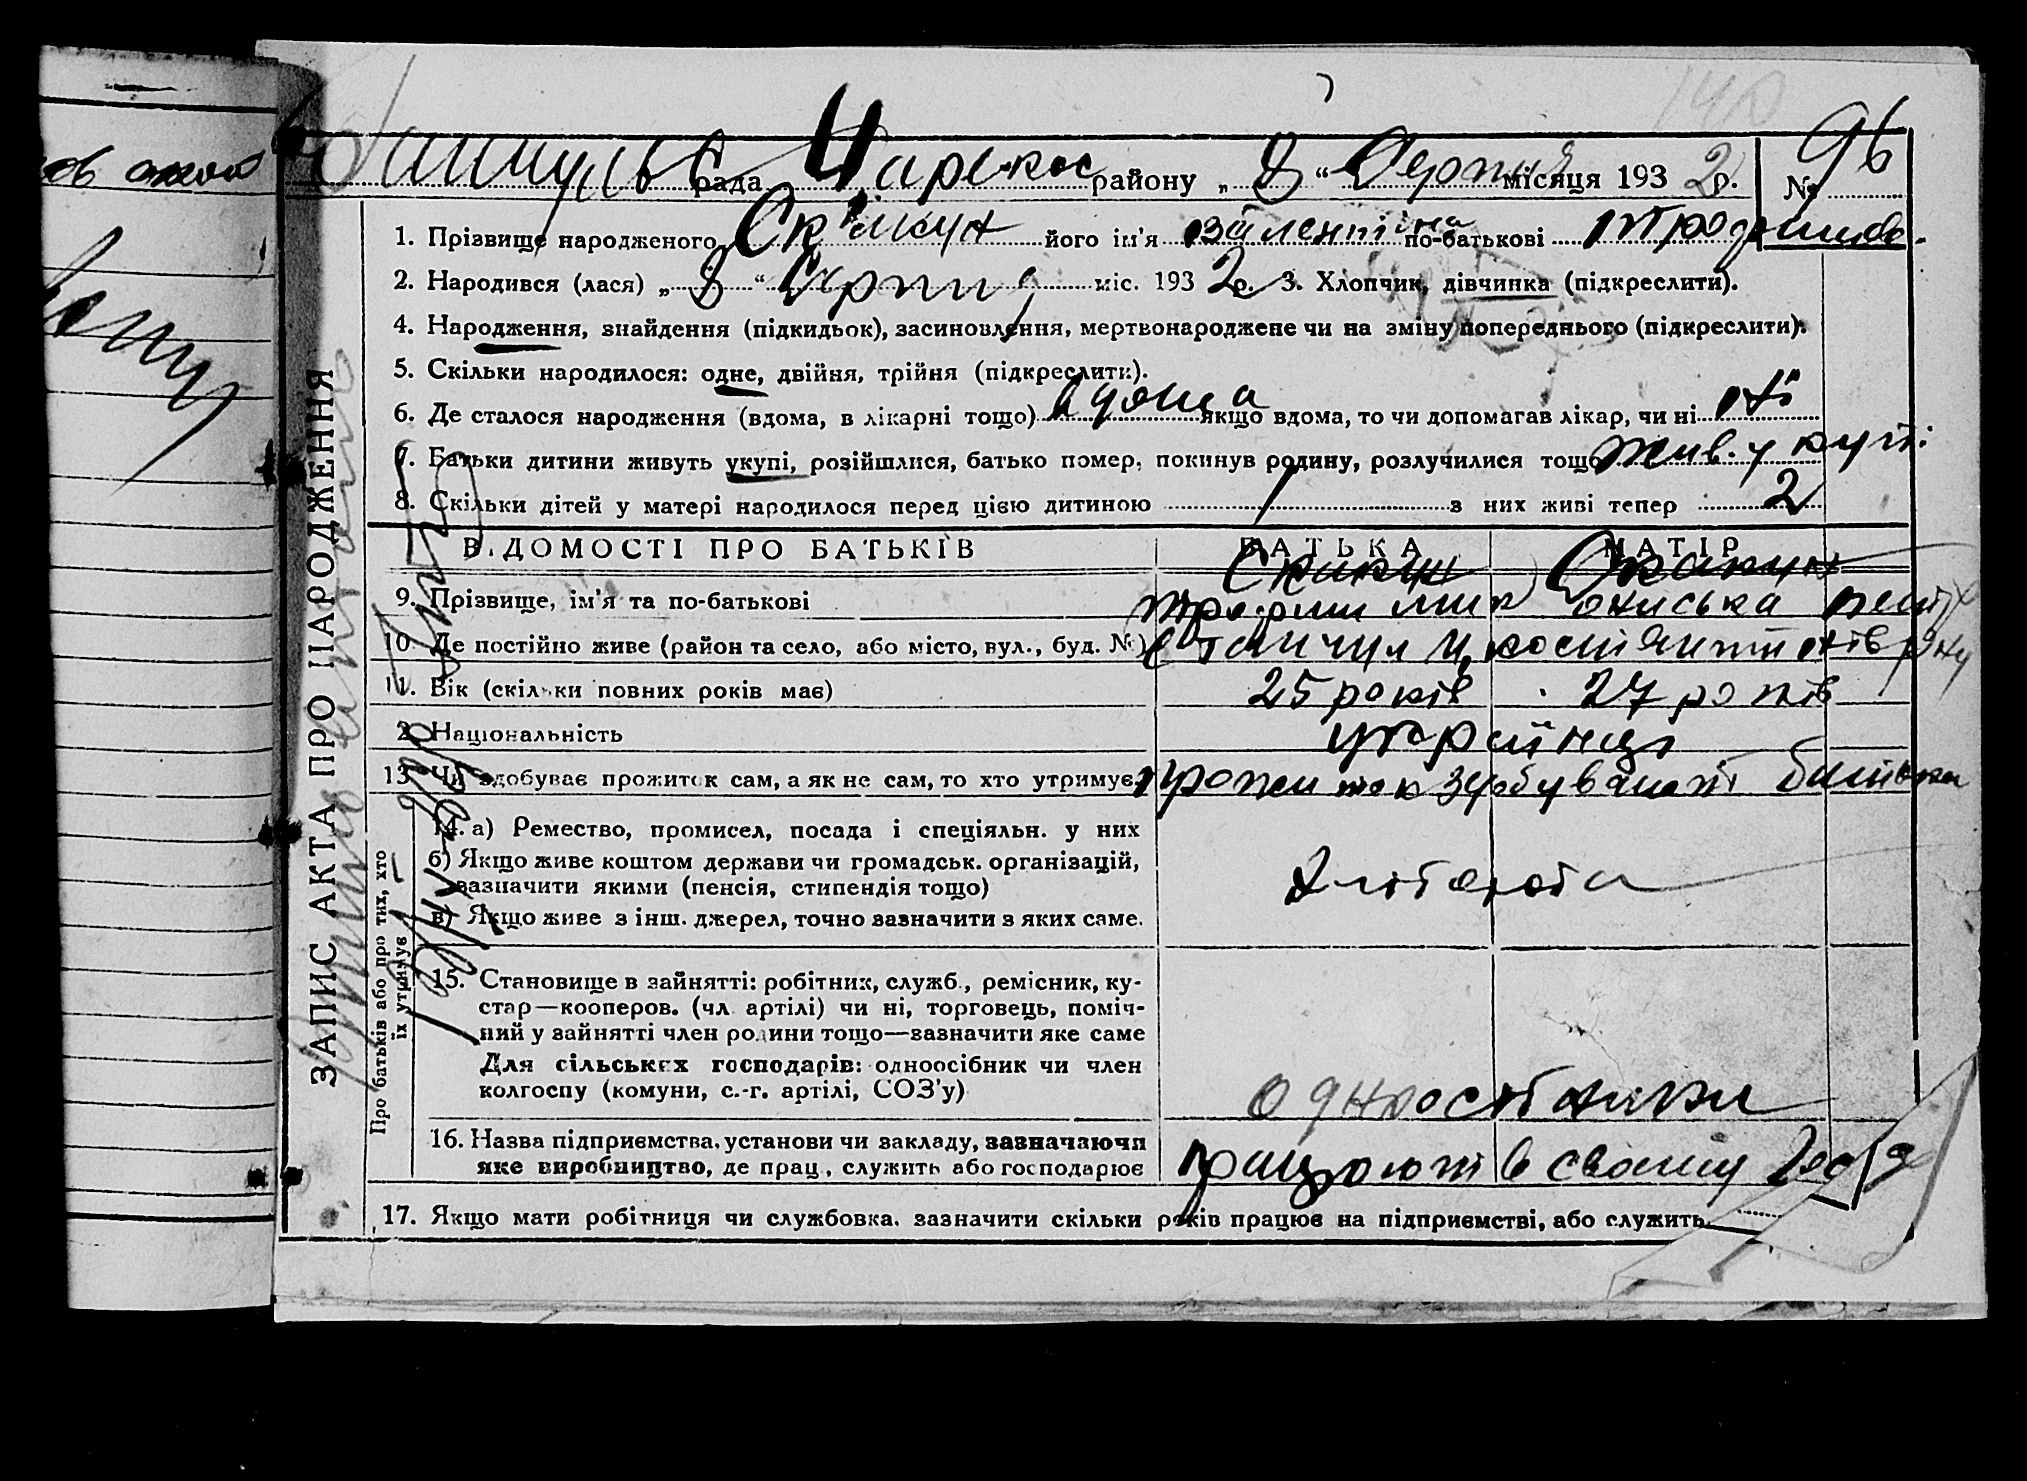 140
рада района „ 8 “ Серпня місяця 1932 р. № 96
1. Прізвище народженого Скакун його ім'я Валентіна по-батькові Трофимов.
2. Народився (лася) „ 8 “ Серпня міс. 1932 р. 3. Хлопчик, дівчинка (підкреслити).
4. Народження, знайдення (підкидьок), засиновлення, мертвонароджене чи на зміну попереднього (підкреслити).
5. Скільки народилося: одне, двійня, трійня (підкреслити).
6. Де сталося народження (вдома, в лікарні тощо) вдома якщо вдома, то чи допомагав лікар, чи ні ні
7. Батьки дитини живуть укупі, розійшлися, батько помер, покинув родину, розлучилися тощо жив. укупі
8. Скільки дітей у матері народилося перед цією дитиною 1 з них живі тепер 2
ВІДОМОСТІ ПРО БАТЬКІВ БАТЬКА МАТІР
Скакун Скакун
9. Прізвище, ім'я та по-батькові Трофим Мик Ониська
10. Де постійно живе (район та село, або місто, вул., буд. №)
11. Вік (скільки повних років має) 25 років 27 років
12. Національність українці
13. Чи здобуває прожиток сам, а як не сам, то хто утримує прожиток здобувають
14. а) Ремество, промисел, посада і спеціяльн. у них
б) Якщо живе коштом держави чи громадськ. організацій,
зазначити якими (пенсія, стипендія тощо) хлібороби
в) Якщо живе з інш. джерел, точно зазначити з яких саме.
15. Становище в зайнятті: робітник, служб., ремісник, ку-
стар—кооперов. (чл. артілі) чи ні, торговець, поміч-
ний у зайнятті член родини тощо—зазначити яке саме
Для сільських господарів: одноосібник чи член
колгоспу (комуни, с.-г. артілі, СОЗ'у) одноосібники
16. Назва підприємства, установи чи закладу, зазначаючи
яке виробництво, де прац., служить або господарює працюють в своїму госп
17. Якщо мати робітниця чи службовка, зазначити скільки років працює на підприємстві, або служить
ЗАПИС АКТА ПРО НАРОДЖЕННЯ
Про батьків або про тих, хто
їх утримує